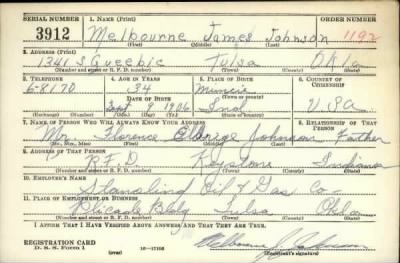 SERIAL NUMBER 1. NAME (Print) ORDER NUMBER
3912 Melbourne James Johnson 1192
(First) (Middle) (Last)
2. ADDRESS (Print)
1341 S Queebic Tulsa Okla
(Number and street or R. F. D. number) (Town) (County) (State)
3. TELEPHONE 4. AGE IN YEARS 5. PLACE OF BIRTH 6. COUNTRY OF CITIZENSHIP
6-8170 34 Muncie
DATE OF BIRTH (Town or county)
Sept 1906 Ind U.S.a
(Exchange) (Number) (Mo.) (Day) (Yr.) (State or country)
7. NAME OF PERSON WHO WILL ALWAYS KNOW YOUR ADDRESS 8. RELATIONSHIP OF THAT PERSON
Mr. Florence Johnson Father
(Mr., Mrs., Miss) (First) (Middle) (Last)
9. ADDRESS OF THAT PERSON
R.F.D. Keystone Indiana
(Number and street or R. F. D. number) (Town) (County) (State)
10. EMPLOYER'S NAME
Stanolind Oil & Gas Co
11. PLACE OF EMPLOYMENT OR BUSINESS
Bldg Tulsa Okla
(Number and street or R. F. D. number) (Town) (County) (State)
I AFFIRM THAT I HAVE VERIFIED ABOVE ANSWERS AND THAT THEY ARE TRUE.
REGISTRATION CARD
D. S. S. Form 1 (over) (Registrant's signature)